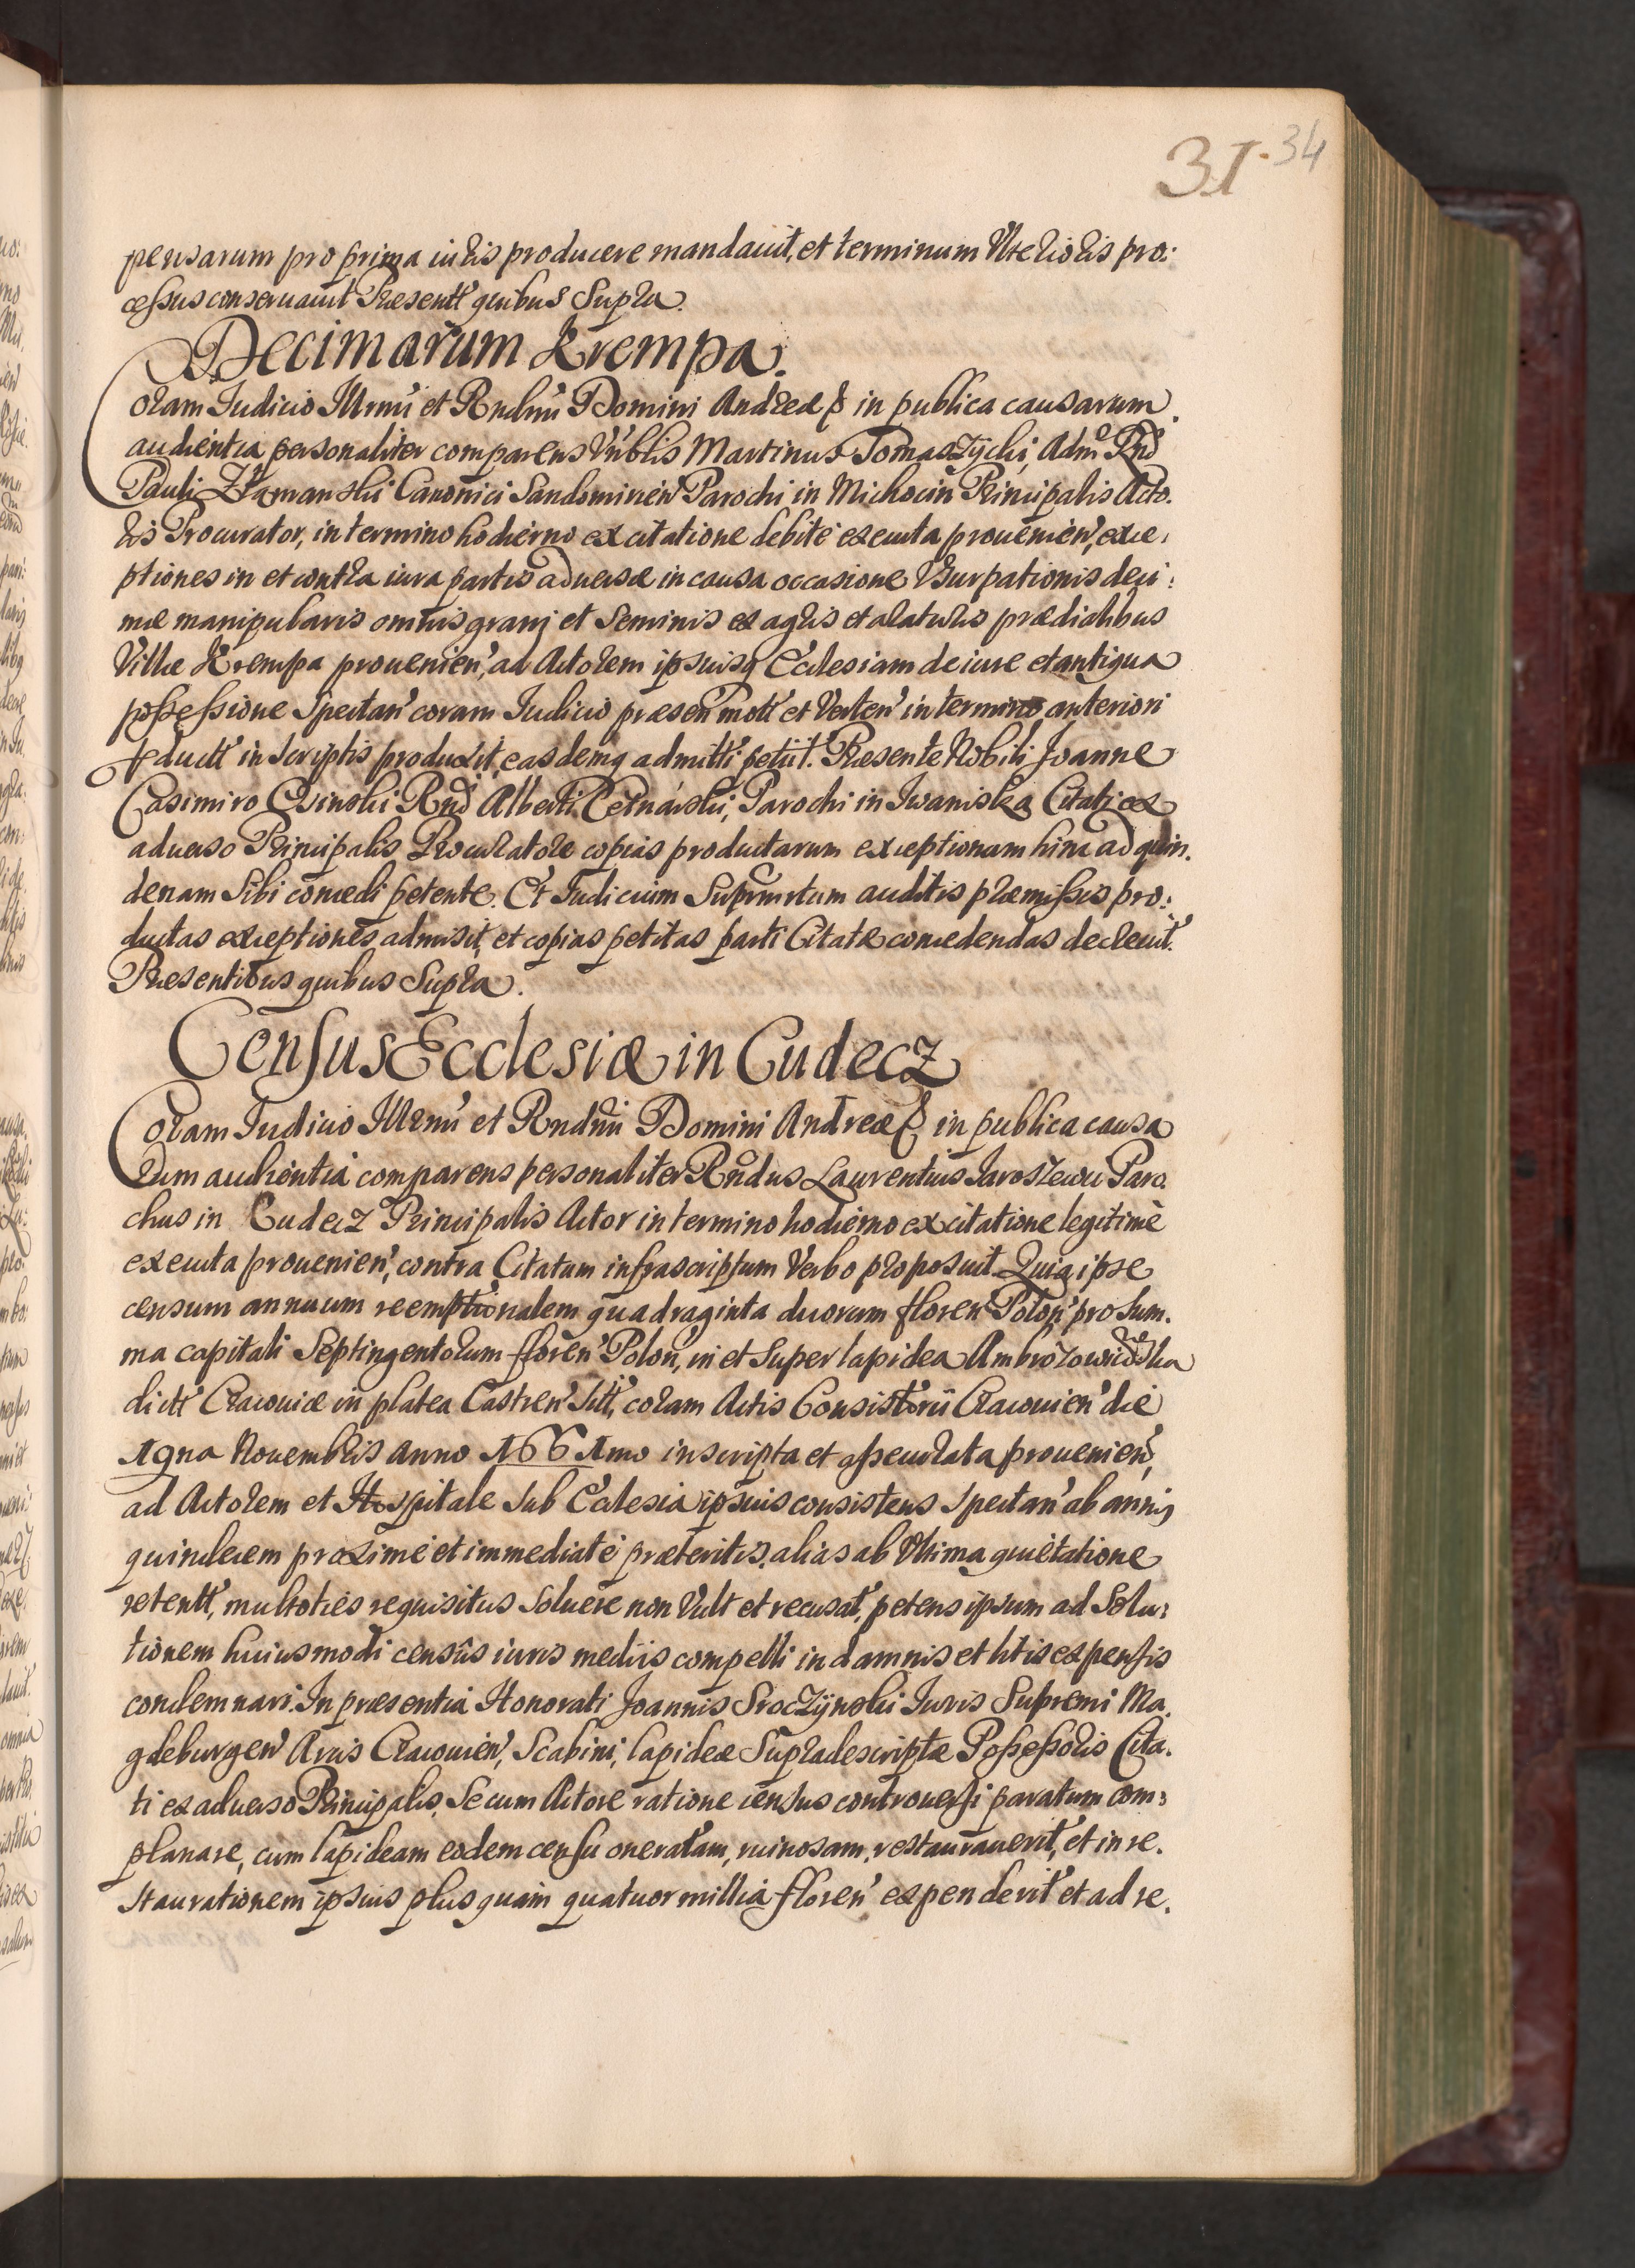 31. 34
pensarum pro prima iuris producere mandauit, et terminum Vlterioris pro:
cessus conseruauit Praesentt' quibus Supra.
Decimarum Krempa.
Coram Iudicio Illrmi et Rndmi Domini Andreae in publica causarum
audientia personaliter comparens Martinus Tomaszycki, Adm Rnd
Pauli Canonici Sandomirien' Parochi in Michocin Principalis Acto.
ris Procurator, in termino hodierno ex citatione debite executa prouenien', exce,
ptiones in et contra iura partis aduersae in causa occasione Vsurpationis deci:
mae manipularis omnis grani et Seminis ex agris et araturis praedialibus
Villae Krempa prouenien', ad Actorem ipsiusq Ecclesiam de iure et antiqua
possessione Spectan' coram Iudicio praesen' mott' et Verten' in termino anteriori
reductt' in Scriptis produxit, easdemq admitti petiit. Praesente Nobili Joanne
Casimiro Rnd Alberti Parochi in Iwaniska Citati ex
aduerso Principalis Procuratore copias productarum exceptionum hinc ad quin.
denam Sibi concedi petente. Et Iudicium Suprmrtum auditis praemissis pro:
ductas exceptiones admisit, et copias petitas parti Citatae concedendas decreuit.
Praesentibus quibus Supra.
Census Ecclesiae in Cudecz
Coram Iudicio Illrmi et Rndmi Domini Andreae in publica causa
rum audientia comparens personaliter Rndus Laurentius Paro.
chus in Cudecz Principalis Actor in termino hodierno ex citatione legitime
executa prouenien', contra Citatum infrascriptum Verbo proposuit. Quia ipse
censum annuum reemptionalem quadraginta duorum floren' Polon' pro Sum.
ma capitali Septingentorum floren' Polon', in et Super lapidea
dictt' Cracouiae in platea Castren' Sitt', coram Actis Consistorii Cracouien' die
19na Nouembris Anno 1661mo inscripta et assecurata prouenien',
ad Actorem et Hospitale Sub Ecclesia ipsius consistens Spectan' ab annis
quindecim proxime et immediate praeteritis, alias ab Vltima quietatione
retentt', multoties requisitus Soluere non Vult et recusat, petens ipsum ad Solu:
tionem huiusmodi censûs iuris mediis compelli in damnis et litis expensis
condemnari. In praesentia Honorati Joannis Sroczynski Iuris Supremi Ma.
gdeburgen' Arcis Cracouien', Scabini, lapideae Supradescriptae Possessoris Cita.
ti ex aduerso Principalis, Se cum Actore ratione census controuersi paratum com:
planare, cum lapideam eodem censu oneratam, ruinosam, restaurauerit, et in re.
staurationem ipsius plus quam quatuor millia floren' expenderit et ad re.